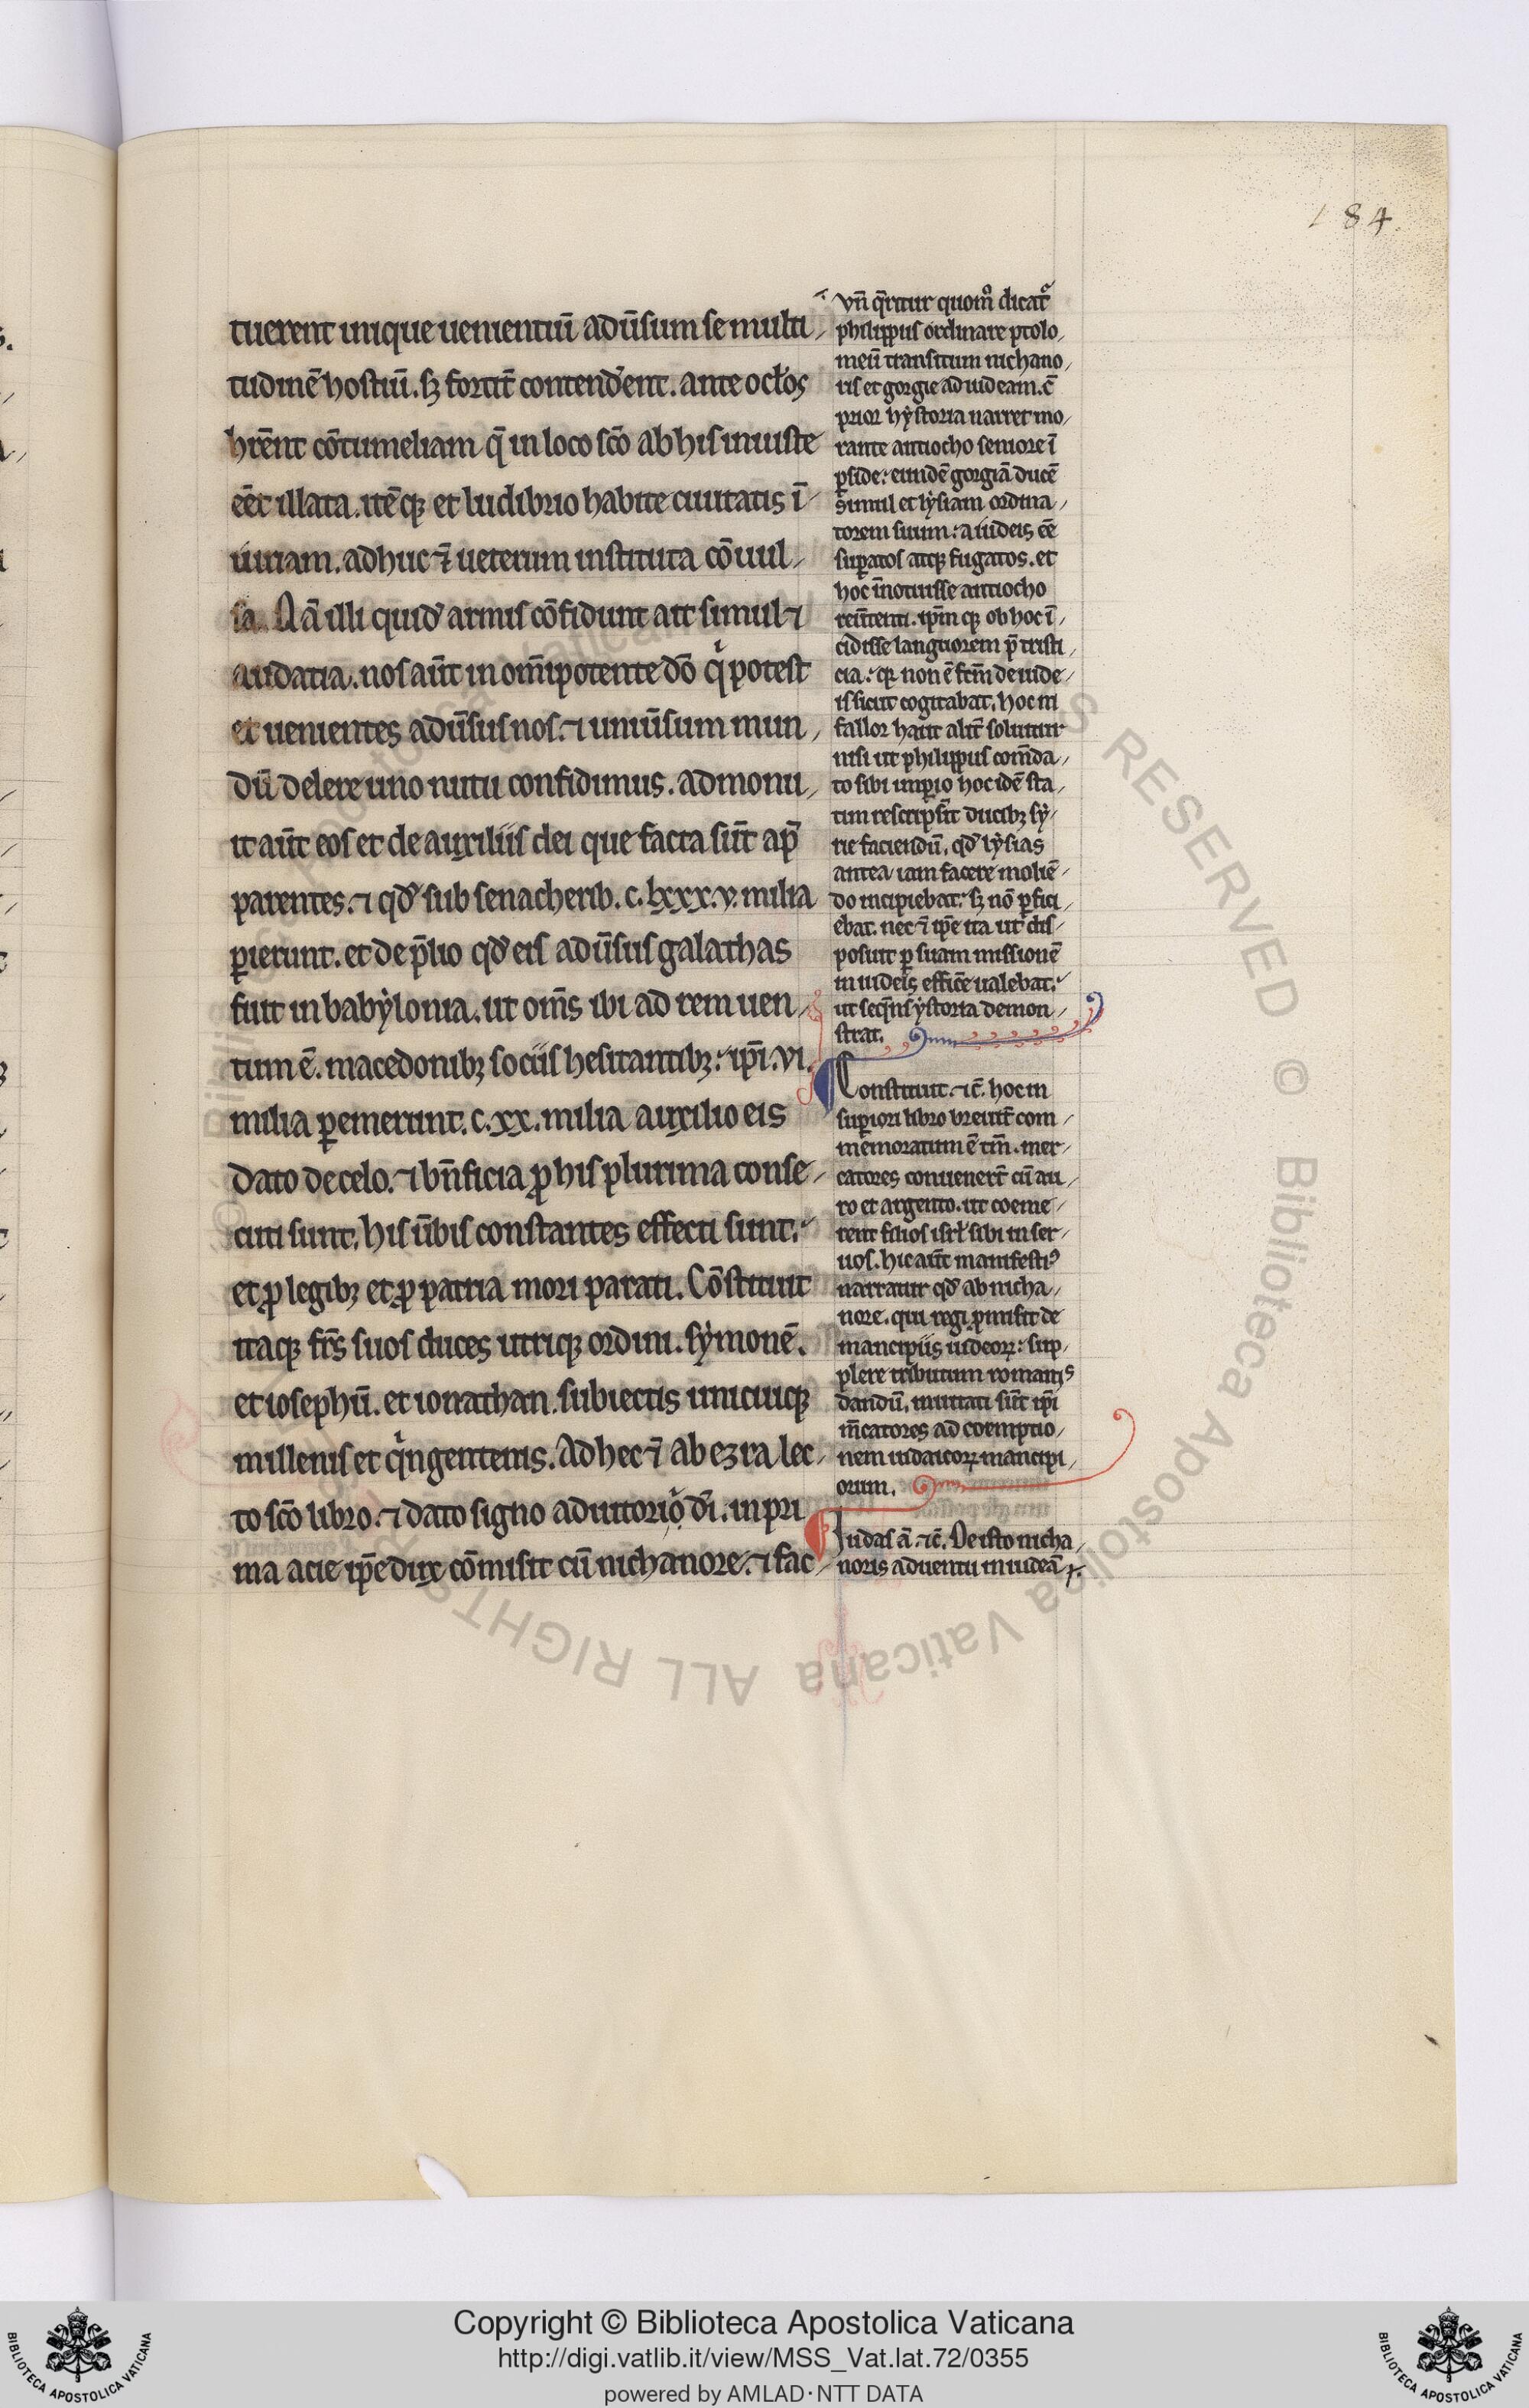 184.
tuerent inique uenientiū adūsum se multi
tudinē hostiū. sꝫ fortit̄ contend̓ent. ante ocl̓os
hr̄ent cōtumeliam q̄ in loco sc̄o ab his iniuste
eēt illata. itēqꝫ et ludibrio habite ciuitatis ī
iuriam. adhuc ⁊̄ ueterum instituta cōuul
sa. Nā illi quid̓ armis cōfidunt ait simul ⁊
audatia. nos aūt in om̄ipotente dō qͥ potest
et uenientes adūsus nos. ⁊ uniūsum mun
dū delere uno nutu confidimus. admonu
it aūt eos et de auxiliis dei que facta sūt ap̄
parentes. ⁊ qd̓ sub senacherib. c. lxxx.v. milia
ꝑierunt. et de p̄lio qd̓ eis adūsus galathas
fuit in babẏlonia. ut om̄s ibi ad rem uen
tum ē. macedonibꝫ sociis hesitantibꝫ. ip̄i. vi.
milia ꝑemerunt. c.xx. milia auxilio eis
dato de celo. ⁊ bn̄ficia ꝓ his plurima conse
cuti sunt. his ūbis constantes effecti sunt.
et ꝓ legibꝫ et ꝓ patria mori parati. Cōstituit
itaqꝫ fr̄s suos duces utriqꝫ ordini. sẏmonē.
et iosephū. et ionathan. subiectis unicuiqꝫ
millenis et qͥngentenis. Ad hec ⁊̄ ab ezra lec
to sc̄o libro. ⁊ dato signo adiutorio̓ dī. in pri
ma acie ip̄e dux cōmisit cū nichanore. ⁊ fac
vn̄ q̄ritur quom̊ dicat̓
philippus ordinare ptolo
meū transitum nichano
ris et gorgie ad iudeam. c̄
prior hẏstoria narret mo
rante antiocho seniore ī
ꝑside. eundē gorgiā ducē
simul et lẏsiam ordina
torem suum. a iudeis eē
suꝑatos atqꝫ fugatos. et
hoc īnotuisse antiocho
reūtenti. ip̄m qꝫ ob hoc ī
cidisse languorem p̄ tristi
cia. qꝫ non ē fc̄m de iude
is sicut cogitabat. hoc ni
fallor haut alit̄ soluitur
nisi ut philippus com̄da
to sibi imꝑio hoc idē sta
tim rescripsit ducibꝫ sẏ
rie faciendū. qd̓ lẏsias
antea iam facere moliē
do incipiebat. sꝫ nō ꝑfici
ebat. nec ⁊̄ ip̄e ita ut dis
posuit ꝑ suam missionē
in iudeis effic̄e ualebat.
ut seq̄ns ẏstoria demon
strat.
Constituit. ⁊c̄. hoc in
suꝑiori libro breuit̄ com
memoratum ē tm̄. mer
catores conuenert̄ cū au
ro et argento. ut coeme
rent filios isrl̓ sibi in ser
uos. hic aūt manifestiꝰ
narratur qd̓ ab nicha
nore. qui regi ꝓmisit de
mancipiis iudeoꝝ. sup
plere tributum romanis
dandū. inuitati sūt ip̄i
m̄catores ad coemptio
nem iudaicoꝝ mancipi
orum.
Iudas ā. ⁊c̄. De isto nicha
noris aduentu in iudeā
Copyright © Biblioteca Apostolica Vaticana
http://digi.vatlib.it/view/MSS_Vat.lat.72/0355
powered by AMLAD·NTT DATA
BIBLIOTECA APOSTOLICA VATICANA
BIBLIOTECA APOSTOLICA VATICANA
© Biblioteca Apostolica Vaticana ALL RIGHTS RESERVED